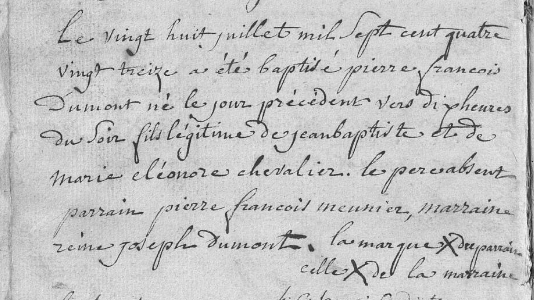 Le vingt huit juillet mil sept cent quatre
vingt treize a été baptisé pierre francois
Dumont né le jour précédent vers dix heures
du soir fils légitime de jeanbaptiste et de
marie eléonore chevalier. le pere absent
parrain pierre francois meunier, marraine
reine joseph dumont. la marque X du parrain
celle X de la marraine